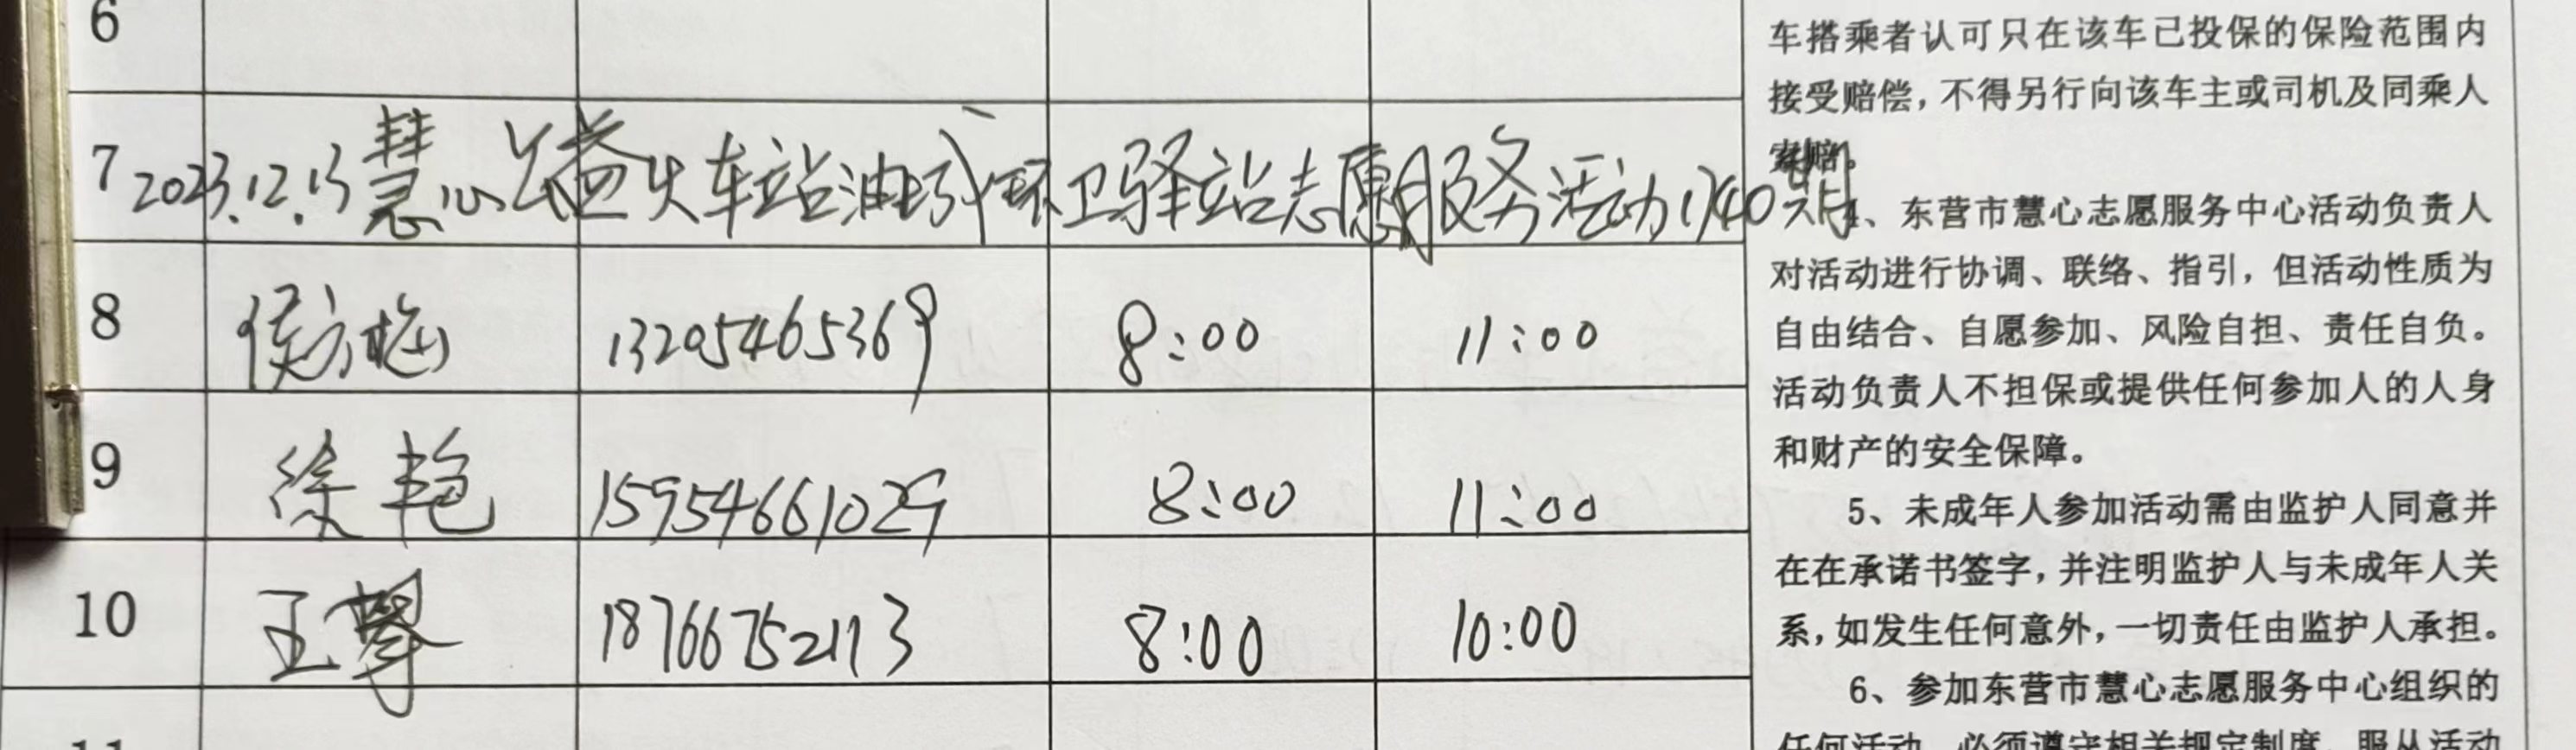 6
7 2023.12.13慧心公益火车站油城环卫驿站志愿服务活动1740期
8 侯方梅 13205465369 8:00 11:00
9 徐艳 15954661029 8:00 11:00
10 王 18766752113 8:00 10:00
车搭乘者认可只在该车已投保的保险范围内
接受赔偿，不得另行向该车主或司机及同乘人
索赔。
4、东营市慧心志愿服务中心活动负责人
对活动进行协调、联络、指引，但活动性质为
自由结合、自愿参加、风险自担、责任自负。
活动负责人不担保或提供任何参加人的人身
和财产的安全保障。
5、未成年人参加活动需由监护人同意并
在在承诺书签字，并注明监护人与未成年人关
系，如发生任何意外，一切责任由监护人承担。
6、参加东营市慧心志愿服务中心组织的
任何活动，必须遵守相关规定制度，服从活动